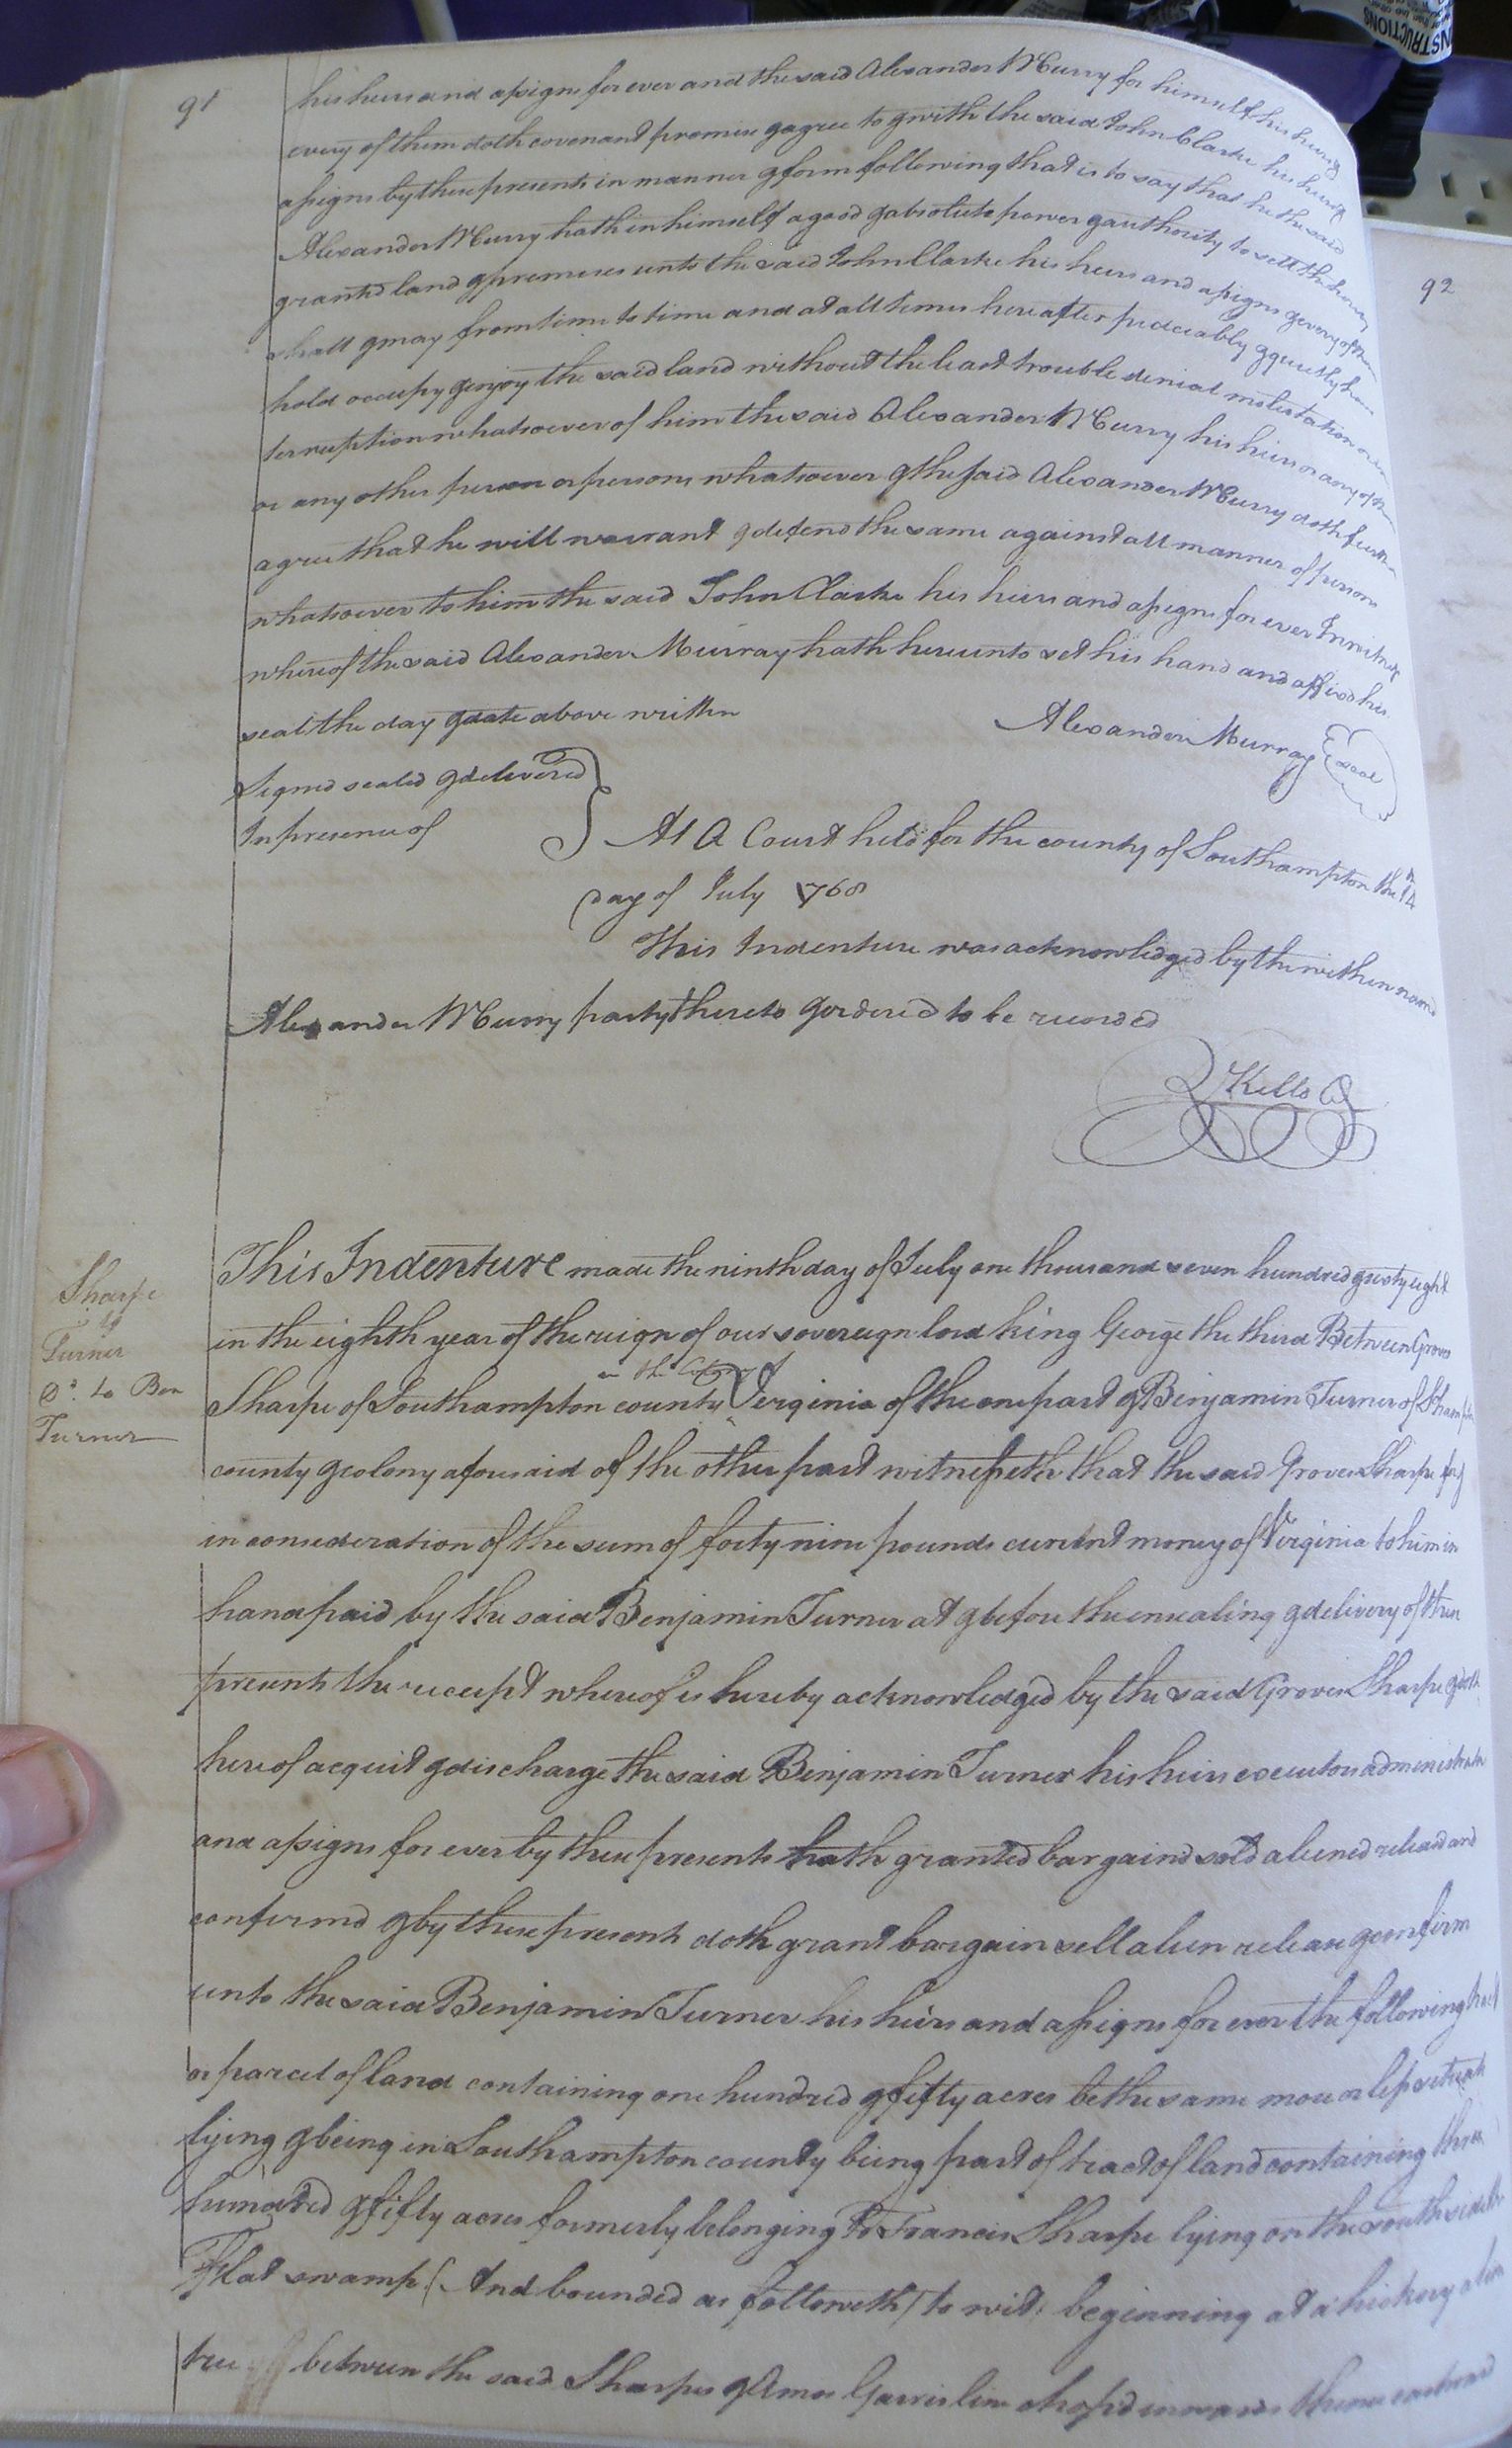 91
his heirs and assigns for ever and the said Alexander Murry for himself his heirs &
every of them doth covenant promise & agree to & with the said John Clarke his heirs &
assigns by these presents in manner & form following that is to say that he the said
Alexander Murry hath in himself a good & absolute power & authority to sell the hereby
granted land & premises unto the said John Clarke his heirs and assigns & every of them
shall & may from time to time and at all times hereafter peaceably & quietly have
hold occupy & enjoy the said land without the least trouble denial molestation or in
terruption whatsoever of him the said Alexander Murry his heirs or any of them
or any other person or persons whatsoever & the said Alexander Murry doth further
agree that he will warrant & defend the same against all manner of persons
whatsoever to him the said John Clarke his heirs and assigns for ever In witness
whereof the said Alexander Murray hath hereunto set his hand and affixed his
seal the day & date above written
Alexander Murray Seal
Signed sealed & delivered
In presence of
At A Court held for the county of Southampton the 14th
day of July 1768
This Indenture was acknowledged by the within named
Alexander Murry party thereto & ordered to be recorded
R Kello
92
Sharpe
to
Turner
Dd. to Ben
Turner
This Indenture made the ninth day of July one thousand seven hundred & sixty eight
in the eighth year of the reign of our sovereign lord king George the third Between Groves
in the Colony of
Sharpe of Southampton county Virginia of the one part & Benjamin Turner of
county & colony aforesaid of the other part witnesseth that the said Groves Sharpe for &
in consideration of the sum of forty nine pounds current money of Virginia to him in
hand paid by the said Benjamin Turner at & before the ensealing & delivery of these
presents the receipt whereof is hereby acknowledged by the said Groves Sharpe & doth
hereof acquit & discharge the said Benjamin Turner his heirs executors administrators
and assigns for ever by these presents hath granted bargaind sold aliened releasd and
confirmd & by these presents doth grant bargain sell alien release & confirm
unto the said Benjamin Turner his heirs and assigns for ever the following tract
or parcel of land containing one hundred & fifty acres be the same more or less situate
lying & being in Southampton county being part of tract of land containing three
hundred & fifty acres formerly belonging to Francis Sharpe lying on the south side
Flat swamp (And bounded as followeth) to wit: beginning at a hickory a line
tree between the said Sharpes & Amos Garris line chopd inwards thence eastward
INSTRUCTIONS